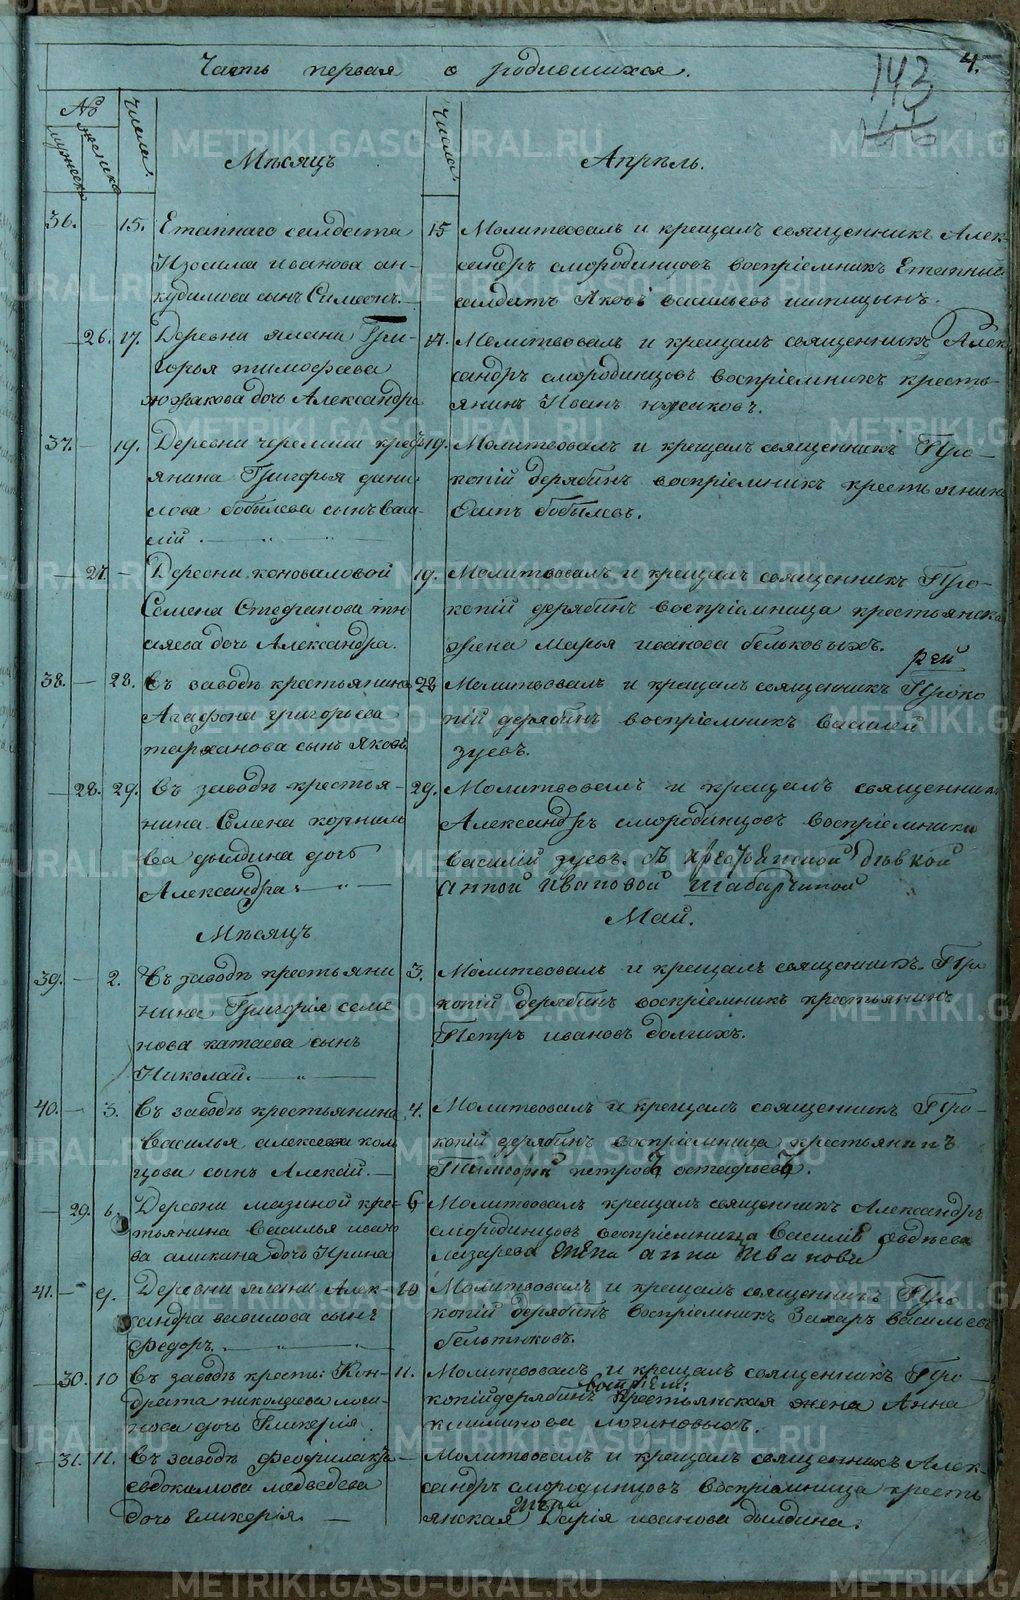 Часть первая о родившихся.
4.
143
№
мужеска
женска
Числа.
Мѣсяцъ
Числа.
Апрѣль.
36. 15. Етапнаго салдата
Изосима Иванова ан-
кудимова сынъ Симеонъ.
15 Молитвовалъ и крещалъ священникъ Алек-
сандръ смородинцовъ воспріемникъ Етапный
салдатъ Яковъ васильевъ шипицынъ.
26. 17. Деревни ялани Гри-
горья тимофѣева
дочь Александра
17. Молитвовалъ и крещалъ священникъ Алек
сандръ смородинцовъ воспріемникъ кресть-
янинъ Иванъ
37. 19. Деревни черемши крес-
янина Григорья дани-
лова бобылева сынъ Васи-
лій
19. Молитвовалъ и крещалъ священникъ Про-
копій дерябинъ воспріемникъ крестьянинъ
Осипъ бобылевъ.
27. Деревни коноваловой
Семена Стефанова
дочь Александра.
19. Молитвовалъ и крещалъ священникъ Про-
копій дерябинъ воспріемница крестьянска
жена Марья иванова бельковыхъ.
38. 28. Въ заводѣ крестьянина
Агафона григорьева
тарханова сынъ Яковъ
28 Молитвовалъ и крещалъ священникъ Проко
пій дерябинъ воспріемникъ василей
зуевъ.
28. 29. Въ заводѣ крестья-
нина Семена корнило
ва дылдина дочь
Александра.
29. Молитвовалъ и крещалъ священникъ
Александръ смородинцовъ воспріемники
василій зуевъ. съ крестьянской дѣвкой
анной Ивановой Шабарчиной
Мѣсяцъ
Май.
39. 2. Въ заводѣ крестьяни
нина Григорія семе
нова катаева сынъ
Николай.
3. Молитвовалъ и крещалъ священникъ Про
копій дерябинъ воспріемникъ крестьянинъ
Петръ ивановъ долгихъ.
40. 3. Въ заводѣ крестьянина
Василья алексеева ком
цова сынъ Алексѣй.
4. Молитвовалъ и крещалъ священникъ Про-
копій дерябинъ воспріемница крестьянинъ
Тимофѣй петровъ остафьевъ.
29. 6. Деревни мазиной крес-
тьянина Василья ивано
ва аликина дочь Ирина
6 Молитвовалъ крещалъ священникъ Александръ
смородинцовъ воспріемница Василій Авдѣева
лизарева жена анна Иванова
41. 9. Деревни ялани Алек-
сандра вавилова сынъ
Федоръ.
10 Молитвовалъ и крещалъ священникъ Про
копій дерябинъ воспріемникъ Захаръ васильевъ
бельтюковъ.
30. 10 Въ заводѣ кресть: Кон-
драта николаева логи-
нова дочь Гликерія
11. Молитвовалъ и крещалъ священникъ Про-
воспріем:
копій дерябинъ крестьянская жена Анна
климинова логиновыхъ.
31. 11. Въ заводѣ феофилакъ
евдокимова медведева
дочь Гликерія.
Молитвовалъ и крещалъ священникъ Алек-
сандръ смородинцовъ воспріемница кресть
жена
янская Дарія иванова дылдина.
METRIKI.GASO-URAL.RU